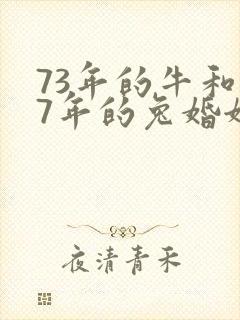 73年的牛和
7年的兔婚
夜清青禾